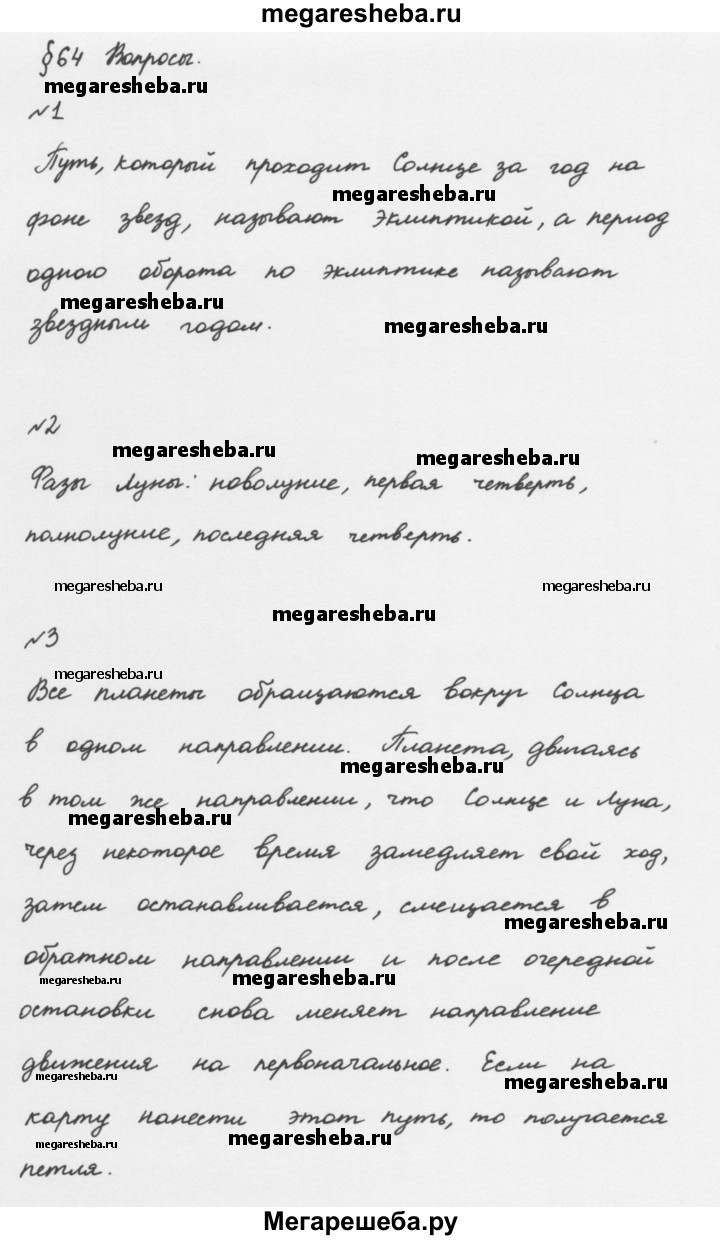 megaresheba.ru
§64 Вопросы.
megaresheba.ru
№1
Путь, который проходит Солнце за год на
megaresheba.ru
фоне звезд, называют эклиптикой, а период
одного оборота по эклиптике называют
megaresheba.ru
звездным годом.
megaresheba.ru
№2
megaresheba.ru
megaresheba.ru
Фазы Луны: новолуние, первая четверть,
полнолуние, последняя четверть.
megaresheba.ru
megaresheba.ru
megaresheba.ru
№3
megaresheba.ru
Все планеты обращаются вокруг Солнца
в одном направлении. Планета, двигаясь
megaresheba.ru
в том же направлении, что Солнце и Луна,
megaresheba.ru
через некоторое время замедляет свой ход,
затем останавливается, смещается в
megaresheba.ru
обратном направлении и после очередной
megaresheba.ru
megaresheba.ru
остановки снова меняет направление
движения на первоначальное. Если на
megaresheba.ru
megaresheba.ru
карту нанести этот путь, то получается
megaresheba.ru
megaresheba.ru
петля.
Мегарешеба.ру